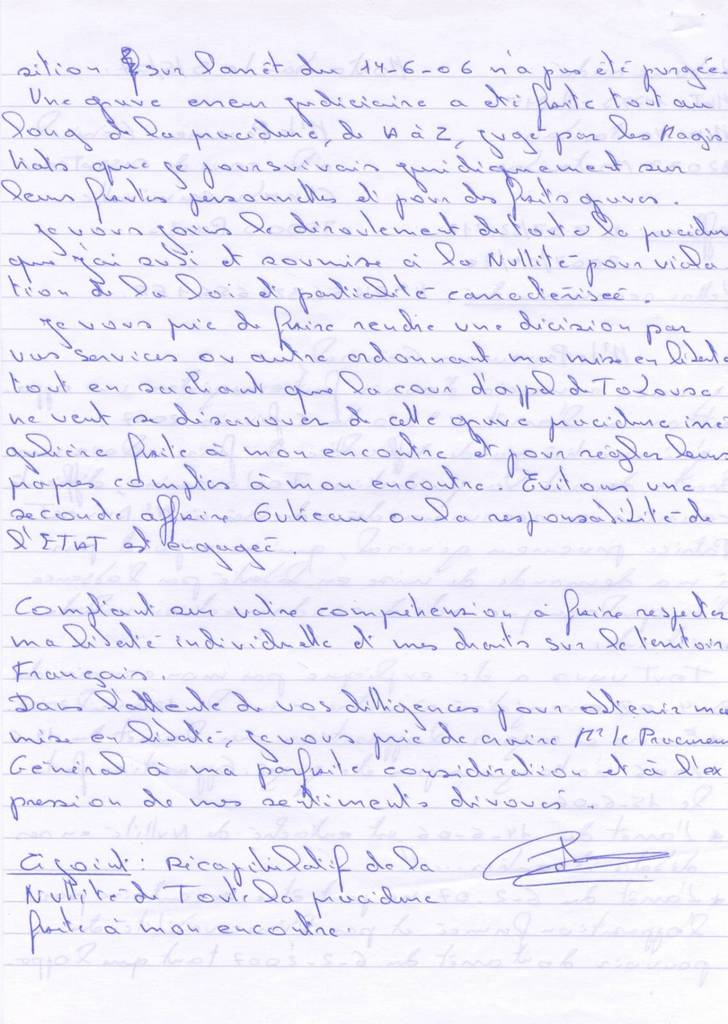 sition sur l'arrêt du 14-6-06 n'a pas été purgée
Une grave erreur judiciaire a été faite tout au
long de la procédure, de A à Z, jugé par les Magis
trats que je poursuivais juridiquement sur
leurs fautes personnelles et pour des faits graves.
Je vous joins le déroulement de toute la procédure
que j'ai subi et soumise à la Nullité pour viola
tion de la loi et partialité caractérisée.
Je vous prie de faire rendre une décision par
vos services ou autre ordonnant ma mise en liberté
tout en sachant que la cour d'appel de Toulouse
ne veut se désavouer de cette grave procédure irré
gulière faite à mon encontre et pour régler leurs
propres comptes à mon encontre. Evitons une
seconde affaire ou la responsabilité de
l'ETAT est engagée.
Comptant sur votre compréhension à faire respecter
ma liberté individuelle et mes droits sur le territoire
Français.
Dans l'attente de vos dilligences pour obtenir ma
mise en liberté, je vous prie de croire Mr le Procureur
Général à ma parfaite considération et à l'ex
pression de mes sentiments dévoués.
Ci joint: Récapitulatif de la
Nullité de Toute la procédure
faite à mon encontre.